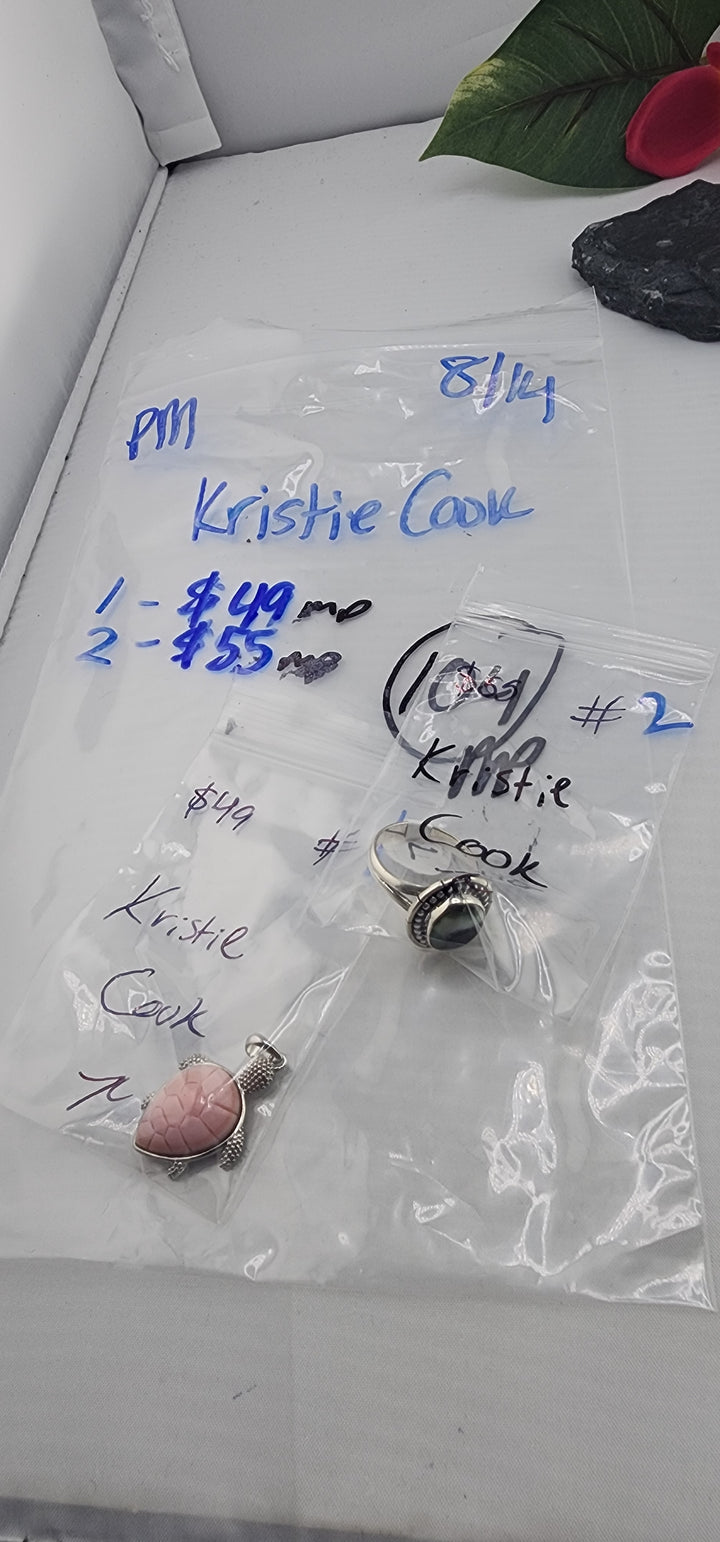 PM 8/14
Kristie Cook
1 - $49 mp
2 - $55 mp
10 $69 #2
Kristie
Cook
$49 #
Kristie
Cook